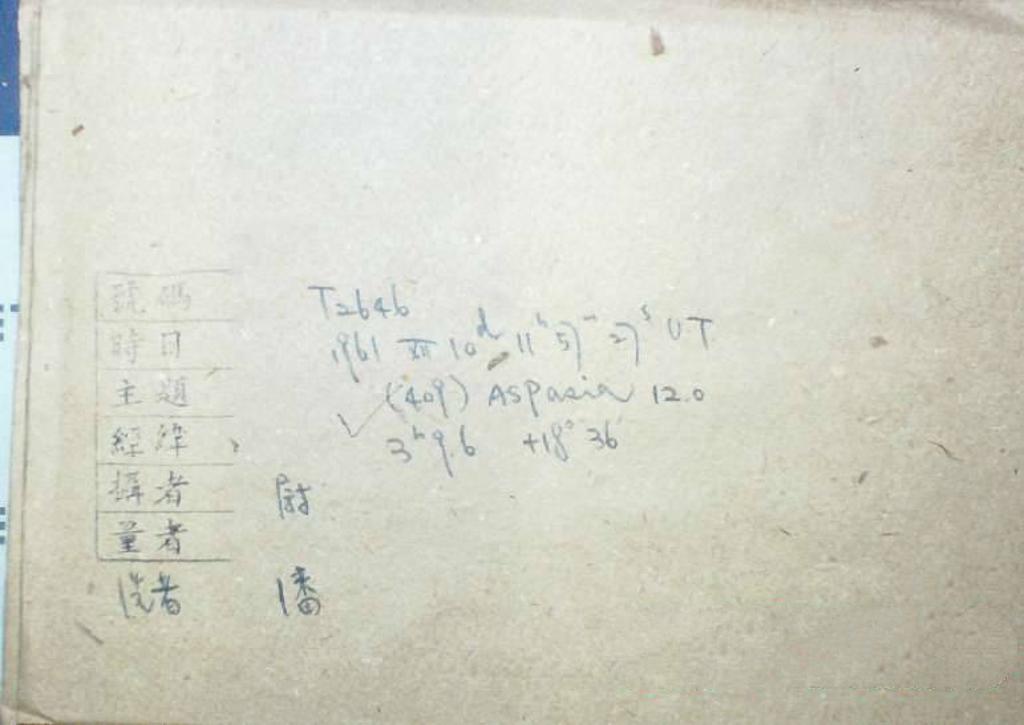 號碼 T2646
時日 1961 XII 10ᵈ 11ʰ 57ᵐ 27ˢ UT
主題 (409) Aspasia 12.0
經緯 3ʰ 9.6 +18° 36
攝者 尉
量者
洗者 潘